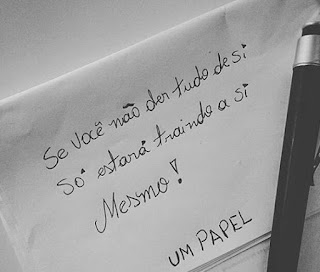 Se você não der tudo de si
Só estará traindo a si
Mesmo!
UM PAPEL